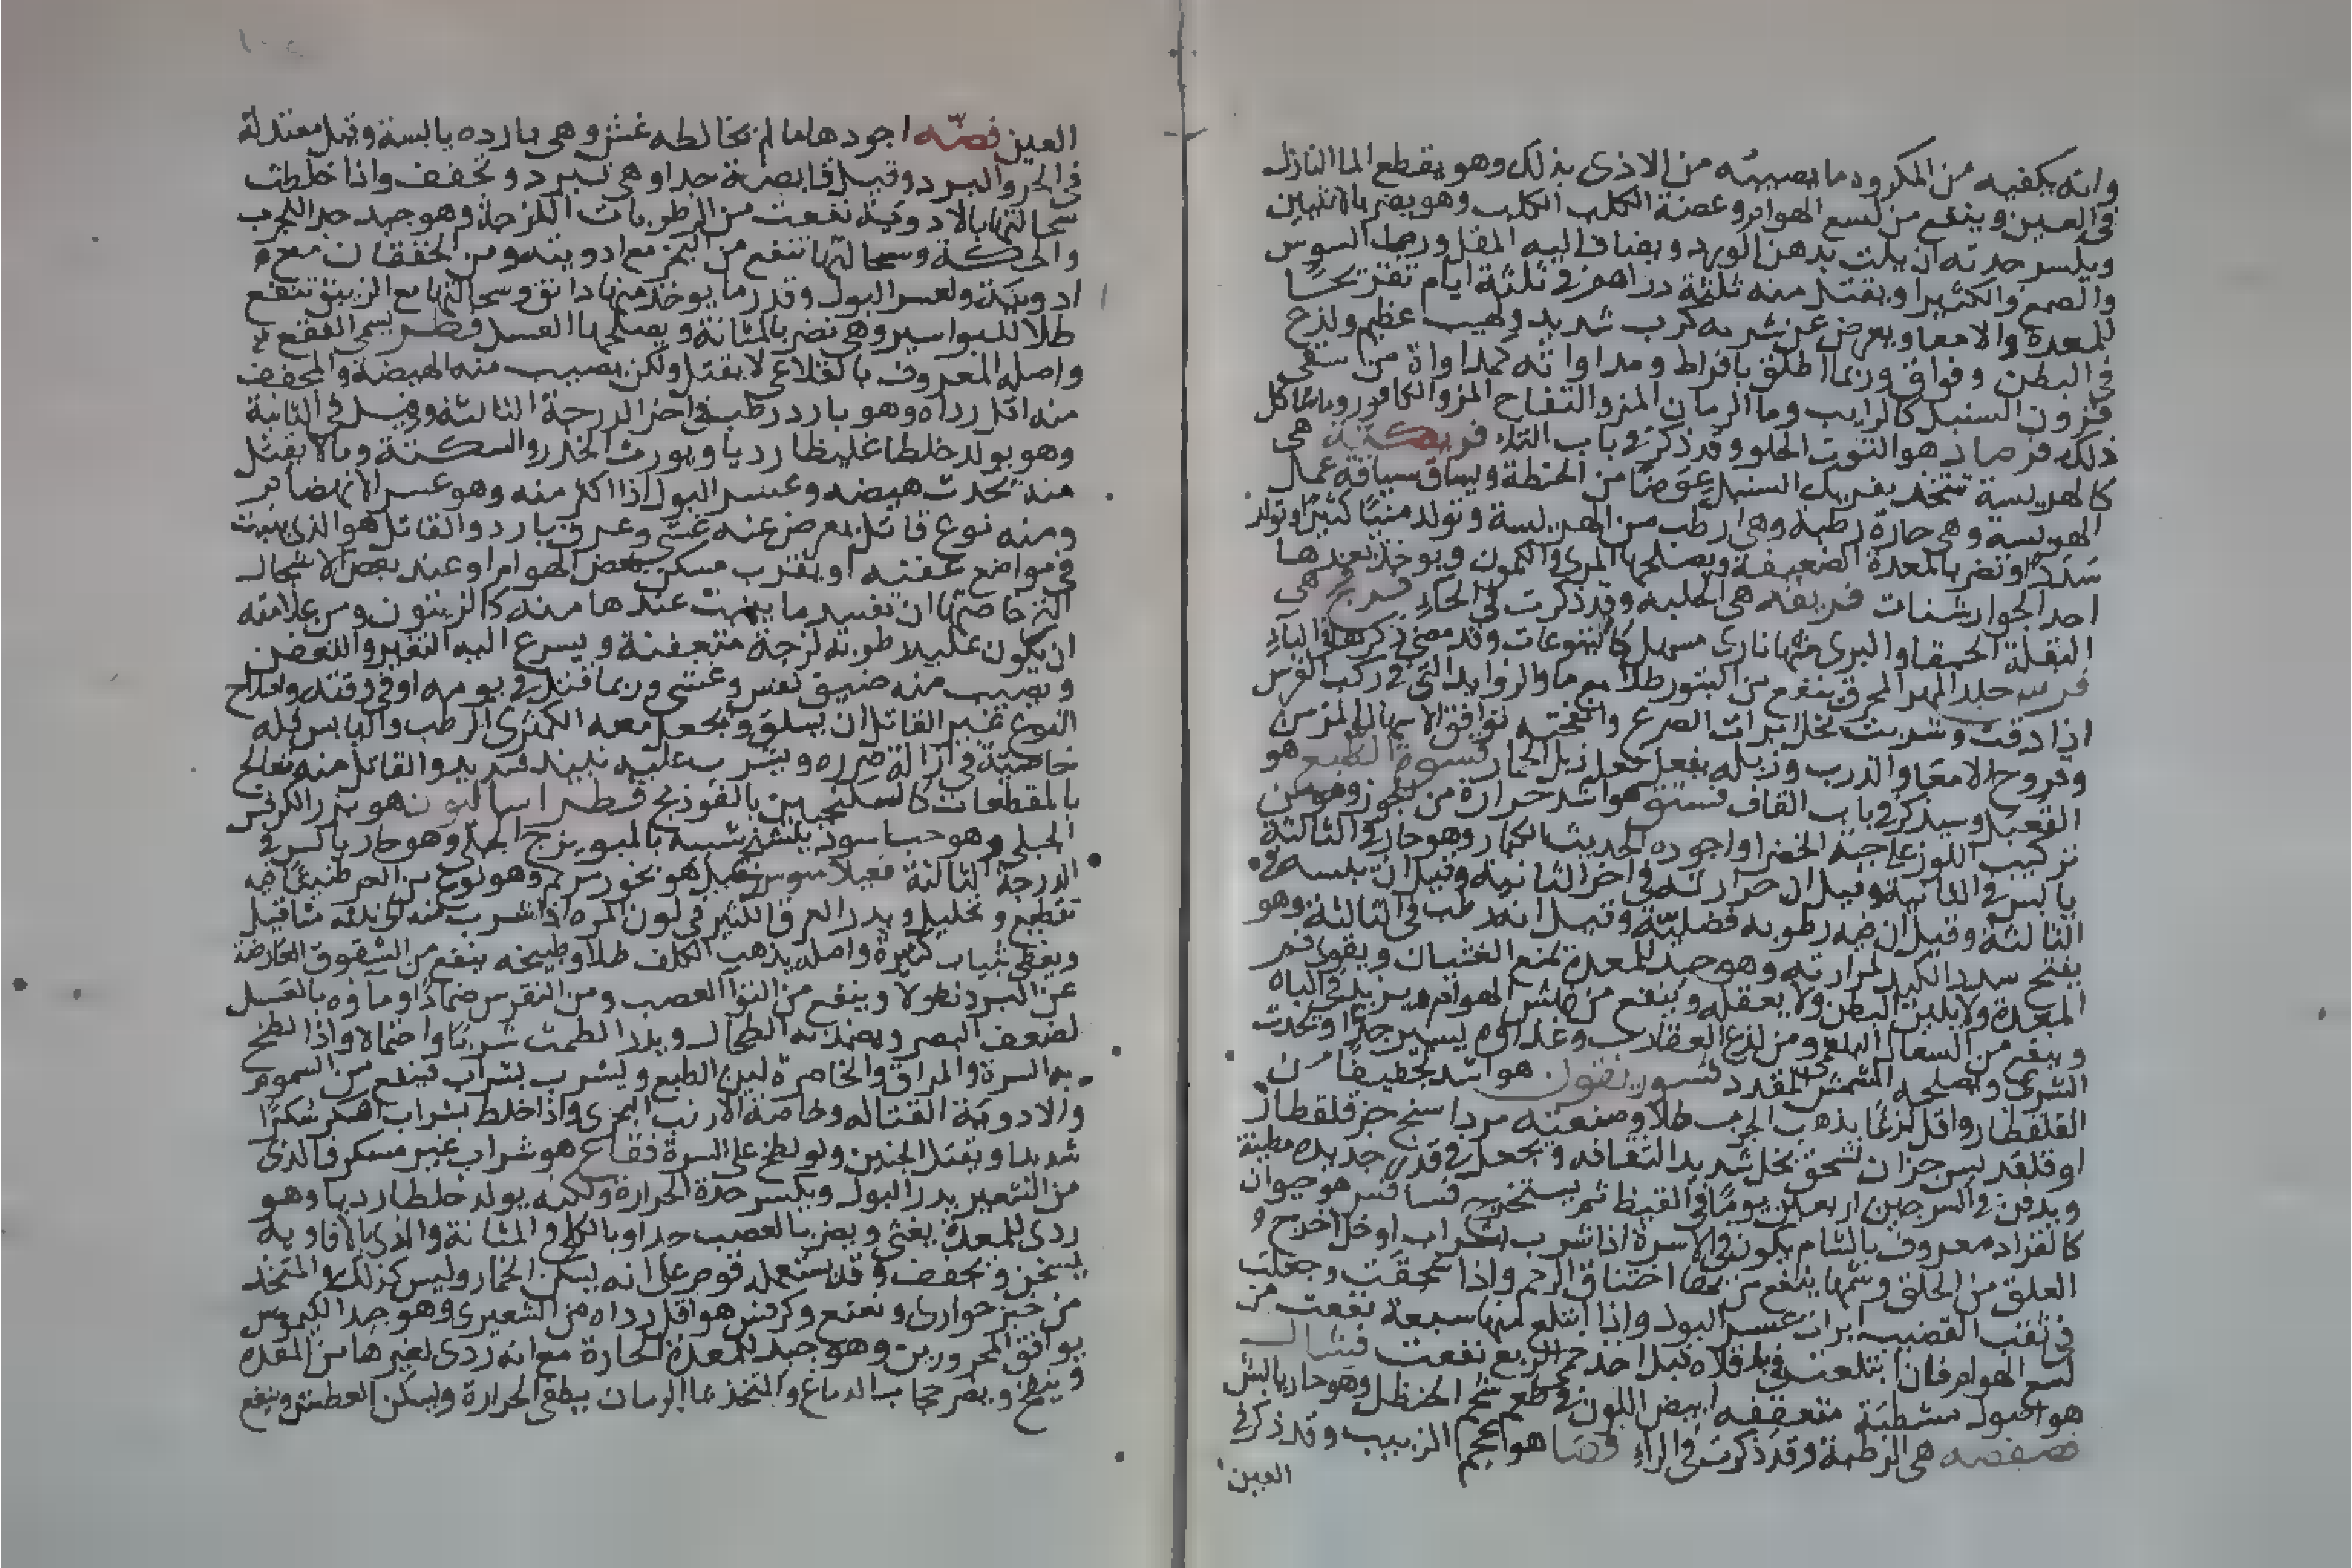 وانه يكفيه من المكروه ما يصيبه من الاذى بذلك وهو يقطع الما النازل
في العين وينفع من لسع الهوام وعضة الكلب الكلب وهو يضر بالانثيين
ويكسر حدته ان يلت بدهن الورد ويضاف اليه المقل ورب السوس
والصمغ والكثيرا ويقتل منه ثلثة دراهم في ثلثة ايام تقرحا
للمعدة والامعا ويعرض عن شربه كرب شديد ولهيب عظيم ولذع
في البطن وفواق وربما اطلق بافراط ومداواته كمداواة من سقى
قرون السنبل كالرايب وما الرمان المز والتفاح المز والكافور وما شاكل
ذلك فرصاد هو التوت الحلو وقد ذكر في باب التاء فريكية هي
كالهريسة تتخذ بفريك السنبل عوضا من الحنطة ويساق سياقة عمل
الهريسة وهي حارة رطبة وهي ارطب من الهريسة وتولد منيا كثيرا وتولد
سددا وتضر بالمعدة الضعيفة ويصلحها المرى والكمون ويوخذ بعدها
احد الجوارشنات فريقه هي الحلبه وقد ذكرت في الحاء فرفخ هي
البقلة الحمقا والبرى منها نارى مسهل كاليتوعات وقد مضى ذكرها في الباء
فرس جلد المهر المحرق ينفع من البثور طلا مع ما والزوايد التي في ركب الفرس
اذا دقت وشربت بخل ابرات الصرع وانفحته توافق الاسهال المزمن
وقروح الامعا والذرب وزبله يفعل فعل زبل الحمار فسوة الضبع هو
القعبل وسيذكر في باب القاف فستق هو اشد حرارة من الجوز وهو من
تركيب اللوز على حبة الخضرا واجوده الحديث الكبار وهو حار في الثالثة
يابس في الثانية وقيل ان حرارته في اخر الثانية وقيل ان يبسه في
الثالثة وقيل ان فيه رطوبه فضلية وقيل انه رطب في الثالثة وهو
يفتح سدد الكبد لمرارته وهو جيد للمعدة يمنع الغثيان ويقوى فم
المعدة ولا يلين البطن ولا يعقله وينفع من نهش الهوام ويزيد في الباه
وينفع من السعال البلغمى ومن لذع العقارب وغذاوه يسير جدا ويحدث
الشرى ويصلحه المشمش المقدد فسوريقون هو اشد تجفيفا من
القلقطار واقل لذعا يذهب الجرب طلا وصنعته مرداسنج جز قلقطار
او قلقديس جزان يسحق بخل شديد الثقافه ويجعل في قدر جديده مطينة
ويدفن في السرجين اربعين يوما في القيظ ثم يستخرج فسافس هو حيوان
كالقراد معروف بالشام يكون في الاسرة اذا شرب بشراب او خل اخرج
العلق من الحلق وشمها ينفع من اختناق الرحم واذا سحقت وجعلت
في ثقب القضيب ابرات عسر البول واذا ابتلع منها سبعة نفعت من
لسع الهوام فان ابتلعت في باقلاه قبل اخذ حمى الربع نفعت فشال
هو اصول مشطبة متعقفه ابيض اللون في طعم شحم الحنظل وهو حار يابس
فصفصه هي الرطبة وقد ذكرت في الراء فصا هو عجم الزبيب وقد ذكر في
العين
العين فضه اجودها ما لم يخالطه غش وهي بارده يابسة وقيل معتدلة
في الحر والبرد وقيل قابضة جدا وهي تبرد وتجفف واذا خلطت
سحالتها بالادوية نفعت من الرطوبات اللزجة وهو جيد جدا للجرب
والحكة وسحالتها تنفع من البخر مع ادويته ومن الخفقان مع
ادويته ولعسر البول وقدر ما يوخذ منها دانق وسحالتها مع الزيبق تنفع
طلا للبواسير وهي تضر بالمثانة ويصلحها العسل فطر يسمى الفقع
واصله المعروف بالقلاعى لا يقتل ولكن يصيب منه الهيضة والمجفف
منه اقل رداه وهو بارد رطب في اخر الدرجة الثالثة وقيل في الثانية
وهو يولد خلطا غليظا رديا ويورث الخدر والسكتة وما لا يقتل
منه يحدث هيضه وعسر البول اذا اكثر منه وهو عسر الانهضام
ومنه نوع قاتل يعرض عنه غشى وعرق بارد والقاتل هو الذى ينبت
في مواضع عفنه او بقرب مسكن بعض الهوام او عند بعض الاشجار
التي خاصتها ان تفسد ما ينبت عندها منه كالزيتون ومن علامته
ان يكون عليه رطوبه لزجة متعفنة ويسرع اليه التغير والتعفن
ويصيب منه ضيق نفس وغشى وربما قتل في يومه او في وقته واصلاح
النوع غير القاتل ان يسلق ويجعل معه الكمثرى الرطب واليابس فله
خاصية في ازالة ضرره ويشرب عليه نبيذ شديد والقاتل منه يعالج
بالمقطعات كالسكنجبين بالفوذنج فطراساليون هو بزر الكرفس
الجبلى وهو حب اسود شبيه بالميويزج الجبلى وهو حار يابس في
الدرجة الثالثة فعيلاموس قيل هو بخور مريم وهو نوع من العرطنيثا فيه
تقطيع وتحليل ويدر العرق الكثير في لون المره اذا شرب منه ثلثه مثاقيل
ويغطى بثياب كثيرة واصله يذهب الكلف طلا وطبيخه ينفع من الشقوق العارضة
عن البرد نطولا وينفع من التوا العصب ومن النقرس ضمادا وماوه بالعسل
لضعف البصر ويضمد به الطحال ويدر الطمث شربا واحتمالا واذا لطخ
به السرة والمراق والخاصرة لين الطبع ويشرب بشراب فينفع من السموم
والادوية القتاله وخاصة الارنب البحرى واذا خلط بشراب اسكر سكرا
شديدا ويقتل الجنين ولو لطخ على السرة فقاع هو شراب غير مسكر فالذى
من الشعير يدر البول ويكسر حدة الحرارة ولكنه يولد خلطا رديا وهو
ردى للمعدة يغثى ويضر بالعصب جدا وبالكلى والمثانة والذى بالافاويه
يسخن ويجفف وقد يستعمله قوم على انه يسكن الخمار وليس كذلك والمتخذ
من خبز حوارى ونعنع وكرفس هو اقل رداه من الشعيرى وهو جيد الكيموس
يوافق المحرورين وهو جيد للمعدة الحارة مع انه ردى لغيرها من المعده
وينفخ ويضر حجاب الدماغ والمتخذ بما الرمان يطفى الحرارة ويسكن العطش وينفع